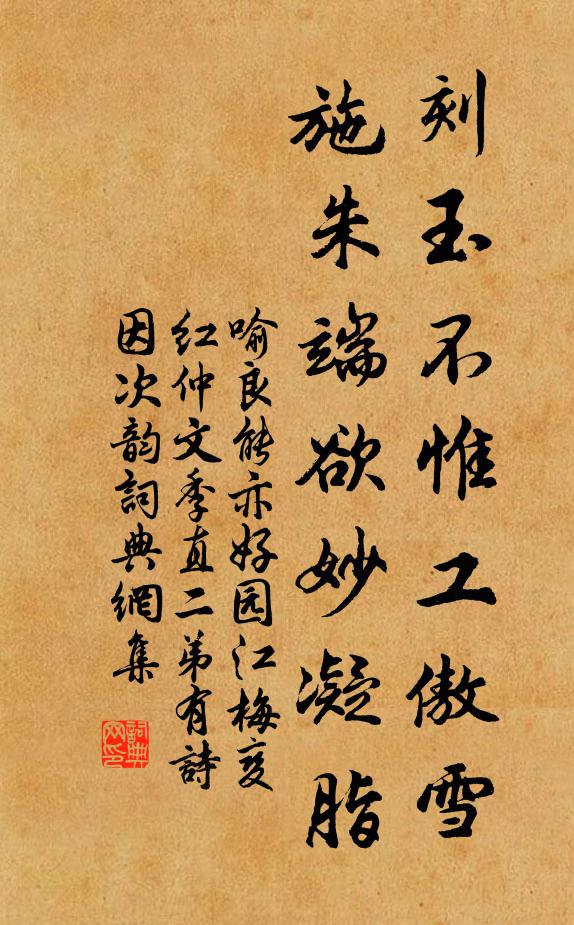 刻玉不惟工傲雪
施朱端欲妙凝脂
喻良能亦好园江梅变
红仲文季直二弟有詩
因次韵詞典網集
詞典网印